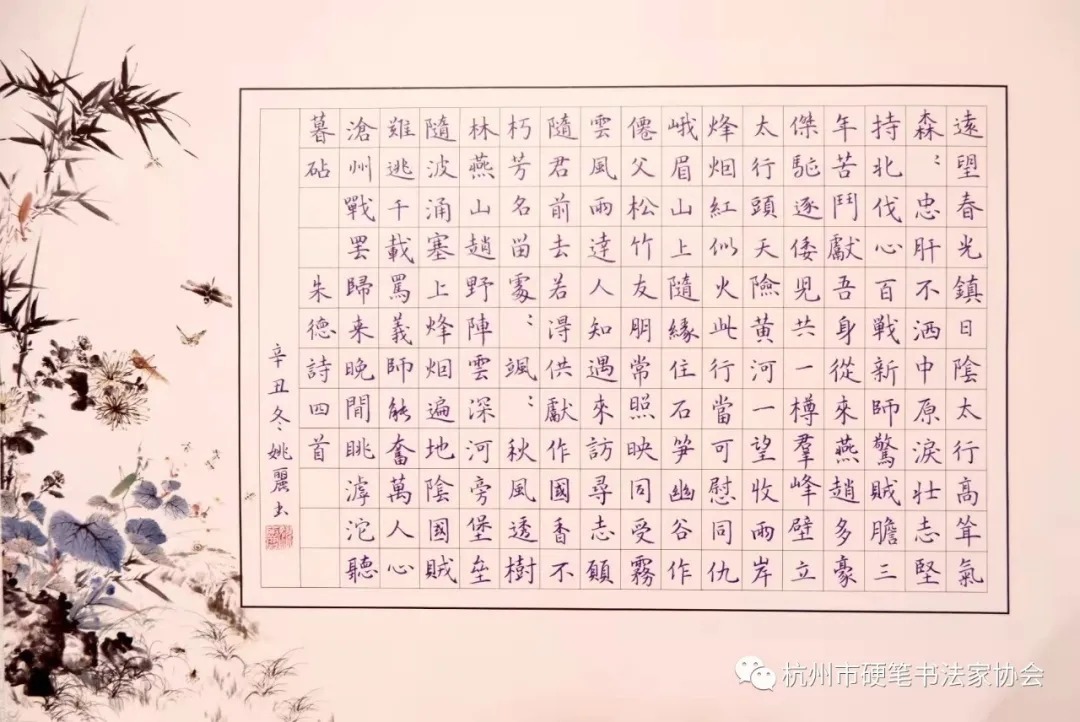 遠望春光鎮日陰太行高聳氣
森：忠肝不洒中原淚壯志堅
持北伐心百戰新師驚賊膽三
年苦鬥獻吾身從來燕趙多豪
傑駈逐倭児共一樽羣峰壁立
太行頭天險黄河一望收兩岸
烽烟紅似火此行當可慰同仇
峨眉山上隨緣住石笋幽谷作
僊父松竹友朋常照映同受霧
雲風雨達人知遇來訪尋志願
隨君前去若淂供獻作國香不
朽芳名畄處：颯：秋風透樹
林燕山趙野陣雲深河旁堡壘
隨波涌塞上烽烟遍地陰國賊
雖逃千載罵義師能奮萬人心
滄州戰罷歸来晚閒眺滹沱聽
暮砧 朱德詩四首
辛丑冬姚麗
杭州市硬笔书法家协会